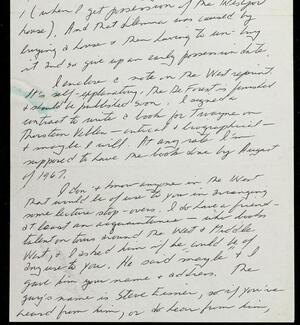 1 (when I get possession of the Westport
house). And that dilemma was caused by
buying a house & then having to un-buy
it and so give up an early possession date.
I enclose a note on the West reprint.
It's self-explanatory. The De Forest is finished
& should be published soon. I signed a
contract to write a book for Twayne on
Thorstein Veblen — critical & biographical —
& maybe I will. At any rate I'm
supposed to have the book done by August
of 1967.
I don't know anyone in the West
that would be of use to you in arranging
some lecture stop-overs. I do have a friend —
at least an acquaintance — who books
talent on tours around the West & Middle
West, & I asked him if he would be of
any use to you. He said maybe & I
gave him your name & address. The
guy's name is Steve so if you've
heard from him, or do hear from him,